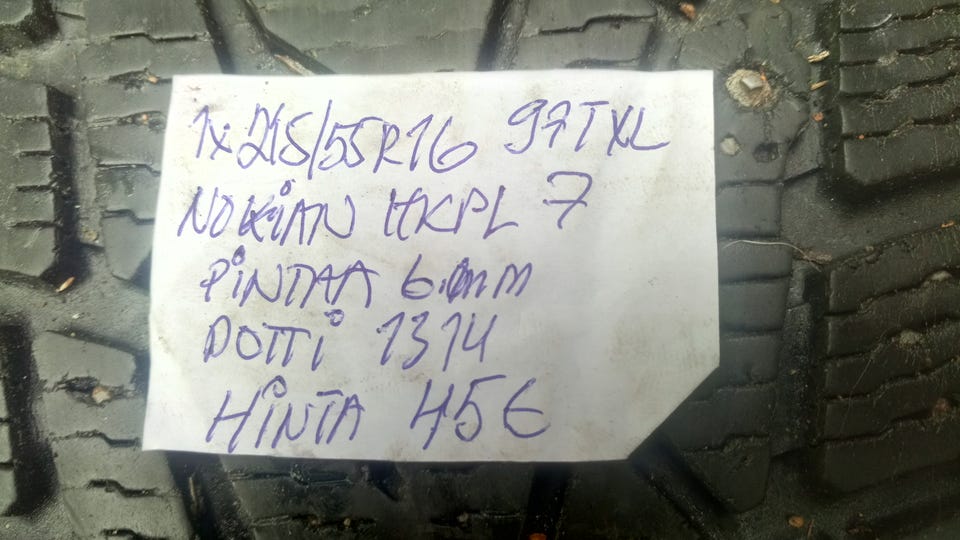 1x 215/55R16 97T XL
NOKIAN HKPL 7
PINTAA 6mm
DOTTI 1314
HINTA 45€